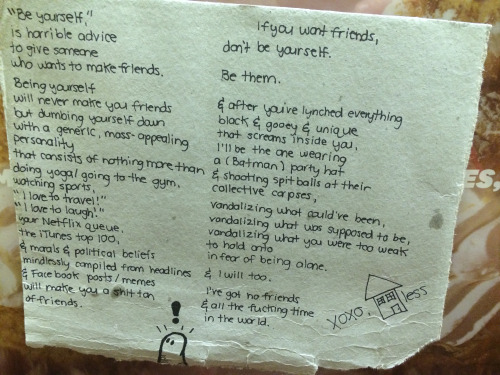 "Be yourself,"
is horrible advice
to give someone
who wants to make friends.
Being yourself
will never make you friends
but dumbing yourself down
with a generic, mass-appealing
personality
that consists of nothing more than
doing yoga/going to the gym,
watching sports,
"I love to travel!"
"I love to laugh!"
your Netflix queue,
the iTunes top 100,
& morals & political beliefs
mindlessly compiled from headlines
& Facebook posts/memes
will make you a shit ton
of friends.
If you want friends,
don't be yourself.
Be them.
& after you've lynched everything
black & gooey & unique
that screams inside you,
I'll be the one wearing
a (Batman) party hat
& shooting spitballs at their
collective corpses,
vandalizing what could've been,
vandalizing what was supposed to be,
vandalizing what you were too weak
to hold onto
in fear of being alone.
& I will too.
I've got no friends
& all the fucking time
in the world.
xoxo, less
!
ES,